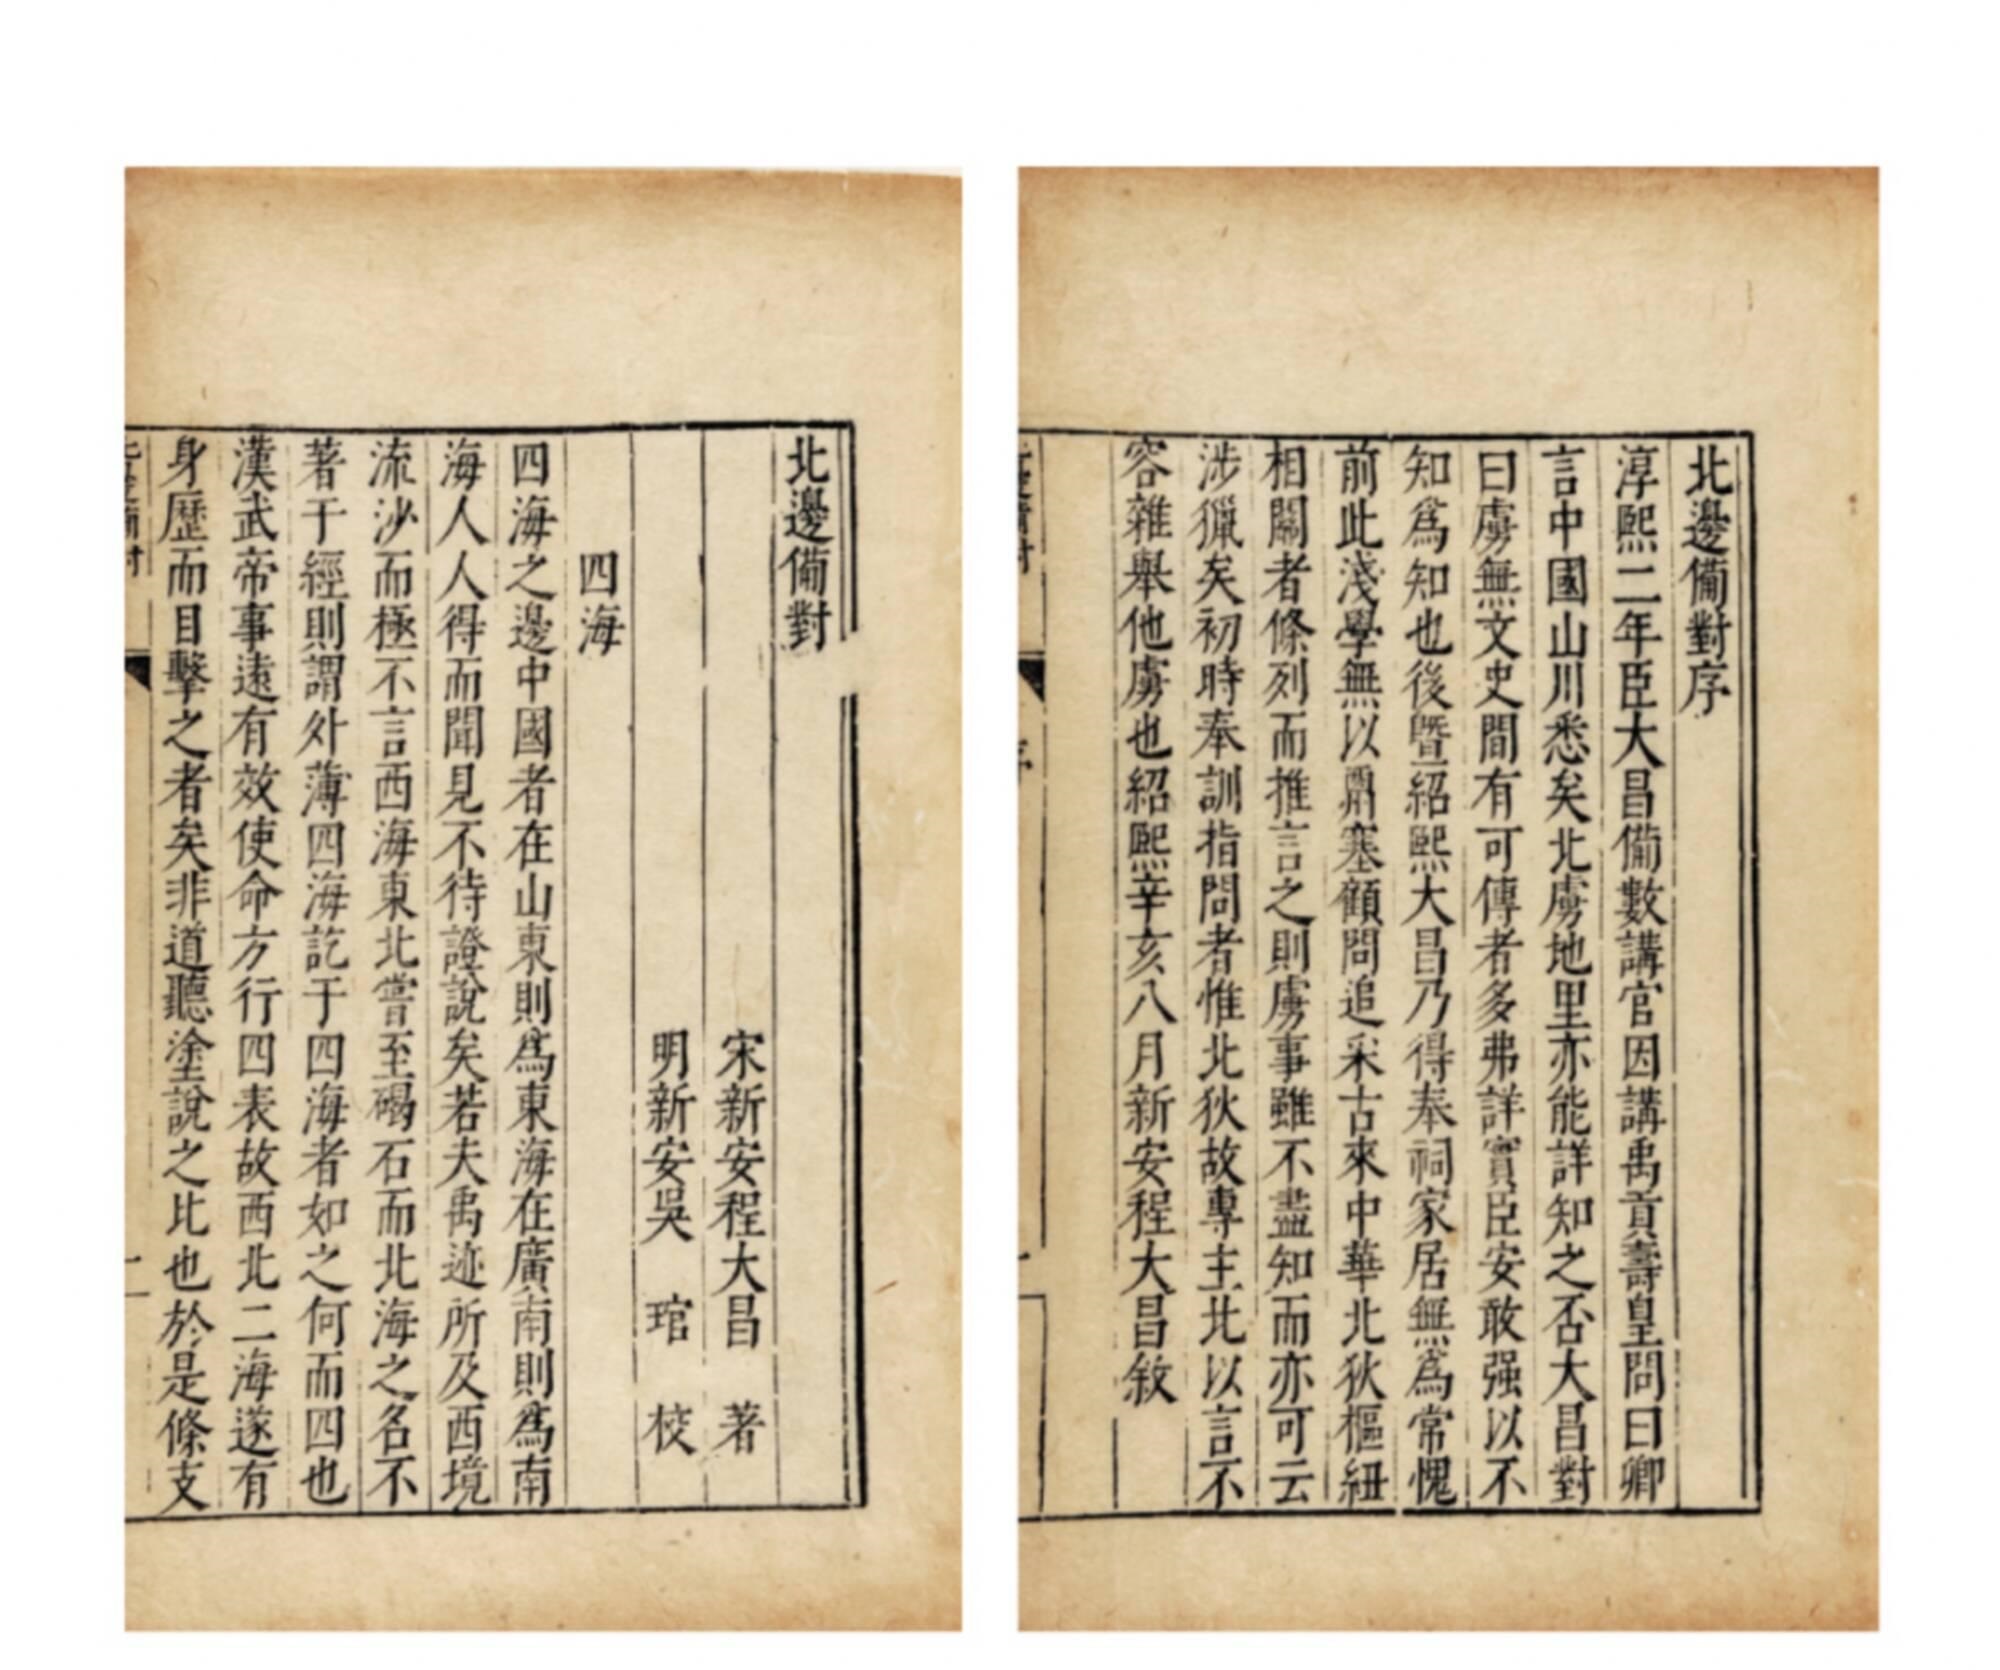 北邊備對序
淳熙二年臣大昌備數講官因講禹貢壽皇問曰卿
言中國山川悉矣北虜地里亦能詳知之否大昌對
曰虜無文史間有可傳者多弗詳實臣安敢强以不
知爲知也後曁紹熙大昌乃得奉祠家居無爲常愧
前此淺學無以罰塞顧問追采古來中華北狄樞紐
相關者條列而推言之則虜事雖不盡知而亦可云
涉獵矣初時奉訓指問者惟北狄故專主北以言不
容雜舉他虜也紹熙辛亥八月新安程大昌敘
北邊備對
宋新安程大昌 著
明新安吳 琯 校
四海
四海之邊中國者在山東則爲東海在廣南則爲南
海人人得而聞見不待證說矣若夫禹迹所及西境
流沙而極不言西海東北嘗至碣石而北海之名不
著于經則謂外薄四海訖于四海者如之何而四也
漢武帝事遠有效使命方行四表故西北二海遂有
身歷而目擊之者矣非道聽塗說之比也於是條支